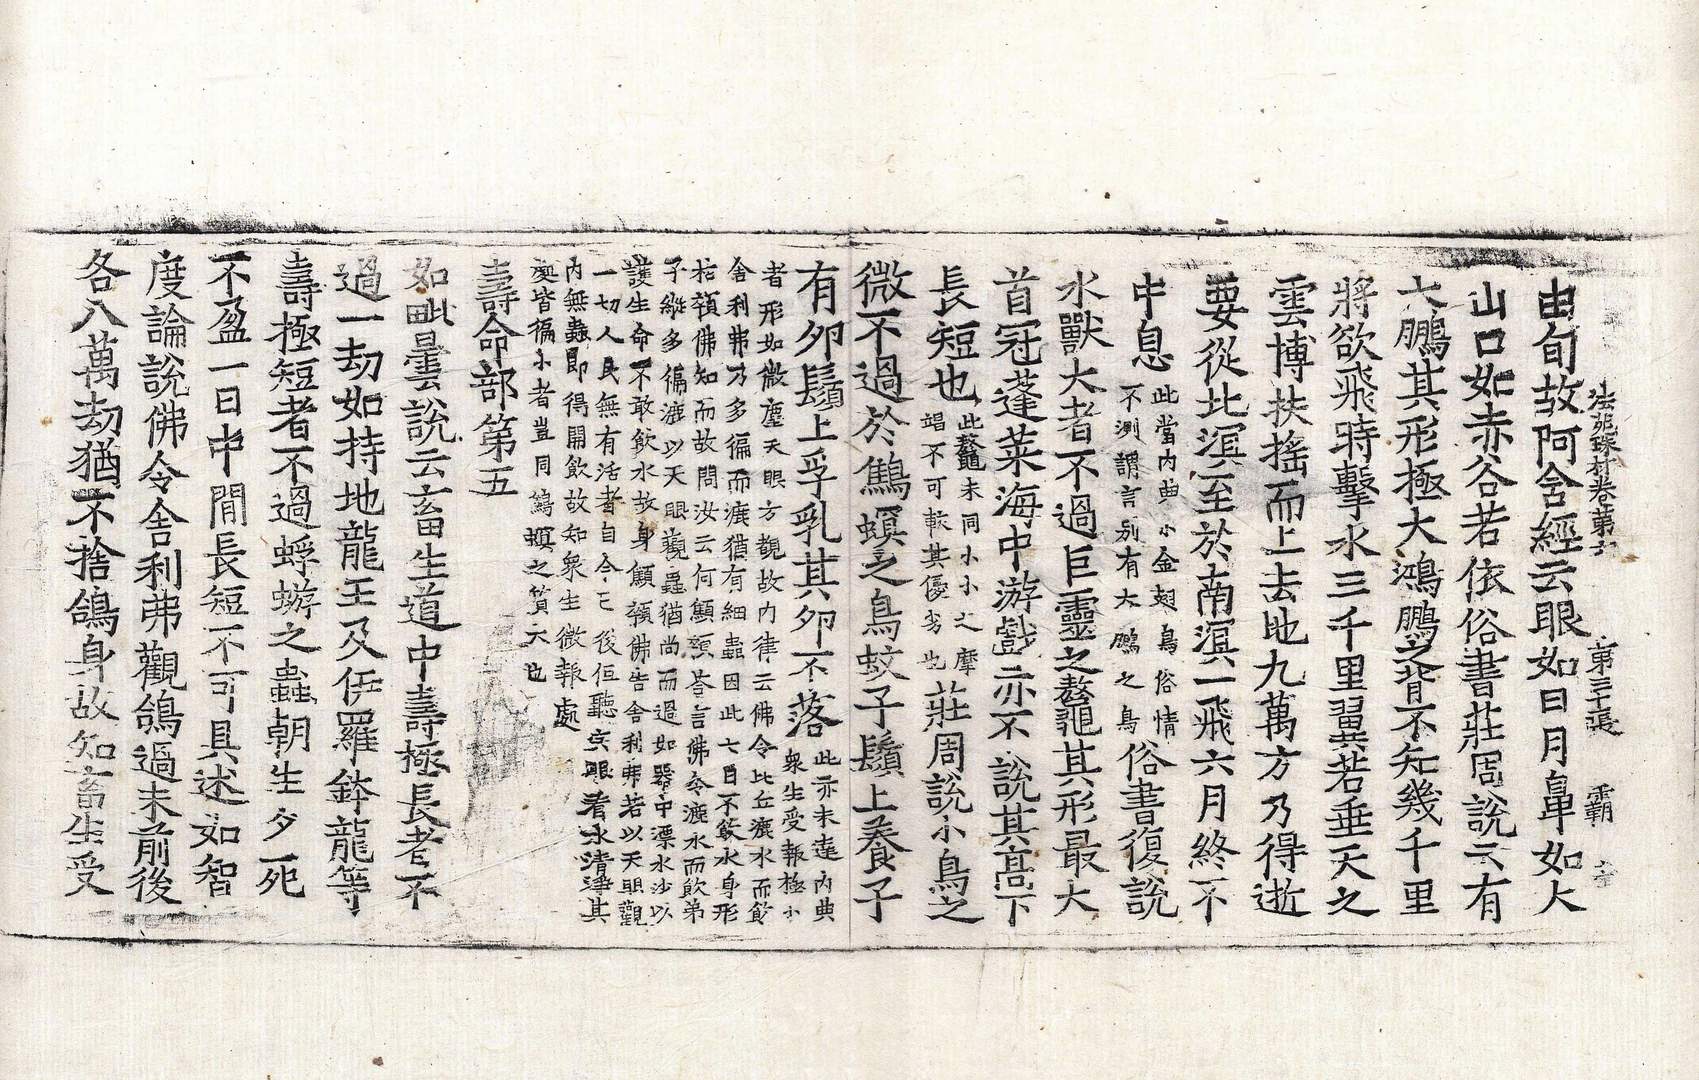 法苑珠林卷第六 第三十張 霸
由旬故阿含經云眼如日月鼻如大
山口如赤谷若依俗書莊周說云有
大鵬其形極大鴻鵬之背不知幾千里
將欲飛時擊水三千里翼若垂天之
雲博扶搖而上去地九萬方乃得逝
要從北溟至於南溟一飛六月終不
中息
此當內典小金翅鳥俗情
不測謂言別有大鵬之鳥
俗書復說
水獸大者不過巨靈之鼇龜其形最大
首冠蓬萊海中游戲亦不說其高下
長短也
此鼇未同小小之摩
竭不可較其優劣也
莊周說小鳥之
微不過於鷦螟之鳥蚊子鬚上養子
有卵鬚上孚乳其卵不落
此亦未達內典
衆生受報極小
者形如微塵天眼方覩故內律云佛令比丘漉水而飲
舍利弗乃多徧而漉猶有細蟲因此七日不飲水身形
枯顇佛知而故問汝云何顦顇荅言佛令漉水而飲弟
子縱多徧漉以天眼觀蟲猶尚而過如器中漂水沙以
護生命不敢飲水故身顦顇佛告舍利弗若以天眼觀
一切人民無有活者自今已後但聽肉眼看水清淨其
內無蟲即得開飲故知衆生微報處
處皆徧小者豈同鷦螟之質大也
壽命部第五
如毗曇說云畜生道中壽極長者不
過一劫如持地龍王及伊羅鉢龍等
壽極短者不過蜉蝣之蟲朝生夕死
不盈一日中閒長短不可具述如智
度論說佛令舍利弗觀鴿過未前後
各八萬劫猶不捨鴿身故知畜生受